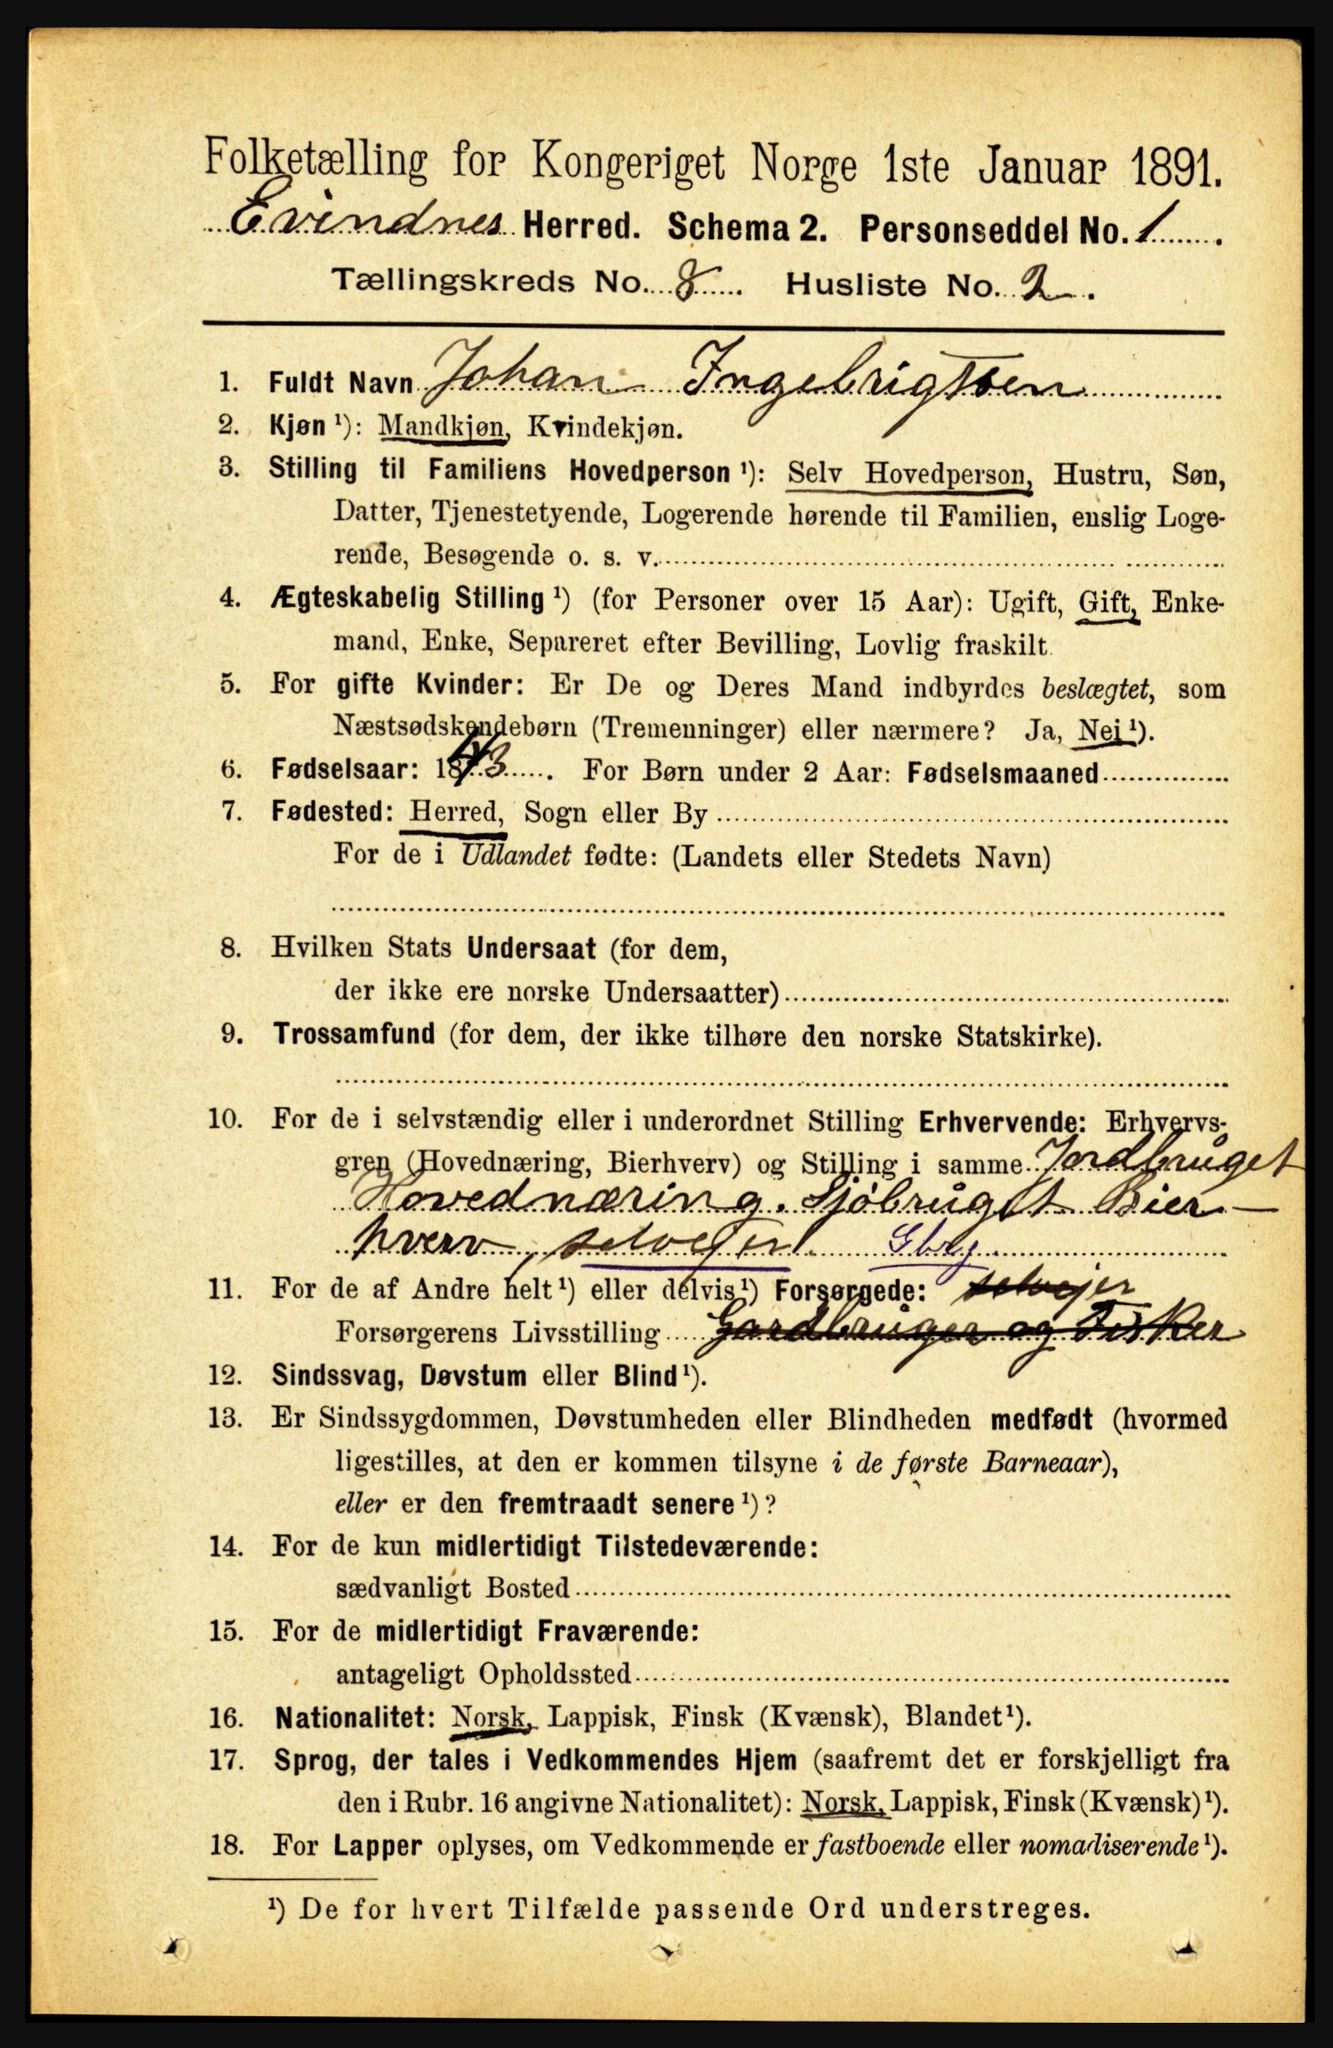 Folketælling for Kongeriget Norge 1ste Januar 1891.
Evindnes Herred. Schema 2. Personseddel No. 1
Tællingskreds No. 8. Husliste No. 2.
1. Fuldt Navn Johan Ingebrigtsen
2. Kjøn¹): Mandkjøn, Kvindekjøn.
3. Stilling til Familiens Hovedperson¹): Selv Hovedperson, Hustru, Søn,
Datter, Tjenestetyende, Logerende hørende til Familien, enslig Loge-
rende, Besøgende o. s. v.
4. Ægteskabelig Stilling¹) (for Personer over 15 Aar): Ugift, Gift, Enke-
mand, Enke, Separeret efter Bevilling, Lovlig fraskilt.
5. For gifte Kvinder: Er De og Deres Mand indbyrdes beslægtet, som
Næstsødskendebørn (Tremenninger) eller nærmere? Ja, Nei¹).
6. Fødselsaar: 1843. For Børn under 2 Aar: Fødselsmaaned
7. Fødested: Herred, Sogn eller By
For de i Udlandet fødte: (Landets eller Stedets Navn)
8. Hvilken Stats Undersaat (for dem,
der ikke ere norske Undersaatter)
9. Trossamfund (for dem, der ikke tilhøre den norske Statskirke).
10. For de i selvstændig eller i underordnet Stilling Erhvervende: Erhvervs-
gren (Hovednæring, Bierhverv) og Stilling i samme Jordbruget
Hovednæring. Sjøbruget Bier-
hverv, selvejer. Gbrg
11. For de af Andre helt¹) eller delvis¹) Forsørgede: selvejer
Forsørgerens Livsstilling Gardbruger og Fisker
12. Sindssvag, Døvstum eller Blind¹).
13. Er Sindssygdommen, Døvstumheden eller Blindheden medfødt (hvormed
ligestilles, at den er kommen tilsyne i de første Barneaar),
eller er den fremtraadt senere¹)?
14. For de kun midlertidigt Tilstedeværende:
sædvanligt Bosted
15. For de midlertidigt Fraværende:
antageligt Opholdssted
16. Nationalitet: Norsk, Lappisk, Finsk (Kvænsk), Blandet¹).
17. Sprog, der tales i Vedkommendes Hjem (saafremt det er forskjelligt fra
den i Rubr. 16 angivne Nationalitet): Norsk, Lappisk, Finsk (Kvænsk)¹).
18. For Lapper oplyses, om Vedkommende er fastboende eller nomadiserende¹).
¹) De for hvert Tilfælde passende Ord understreges.